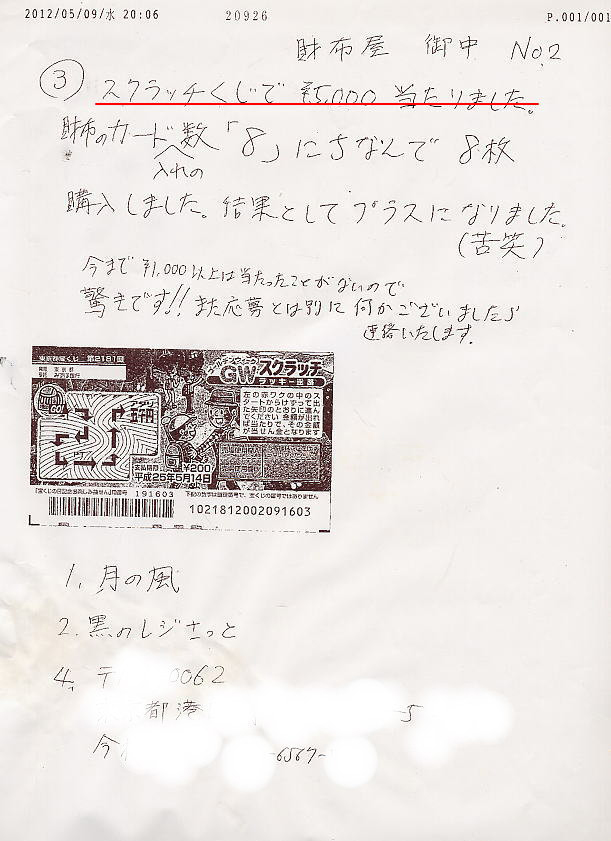 2012/05/09/水 20:06 20926 P.001/001
財布屋 御中 No.2
③ スクラッチくじで ¥5,000 当たりました。
財布のカード入れの数「8」にちなんで 8枚
購入しました。結果としてプラスになりました。
(苦笑)
今まで ¥1,000以上は当たったことがないので
驚きです!! また応募とは別に何かございましたら
連絡いたします。
東京都宝くじ 第2181回
東京都
みずほ銀行
GWスクラッチ
ラッキー迷路
GO!
五千円
左の赤ワクの中のス
タートからけずって出
た矢印のとおりに進ん
でください 金額が出れ
ば当たりで、その金額
が当せん金となります
支払期限
¥200
平成25年5月14日
191603
下記の数字は整理番号で、宝くじの番号ではありません
1021812002091603
1. 月の風
2. 黒のレジさっと
4. 〒 0062
都港 5
今 -6567-